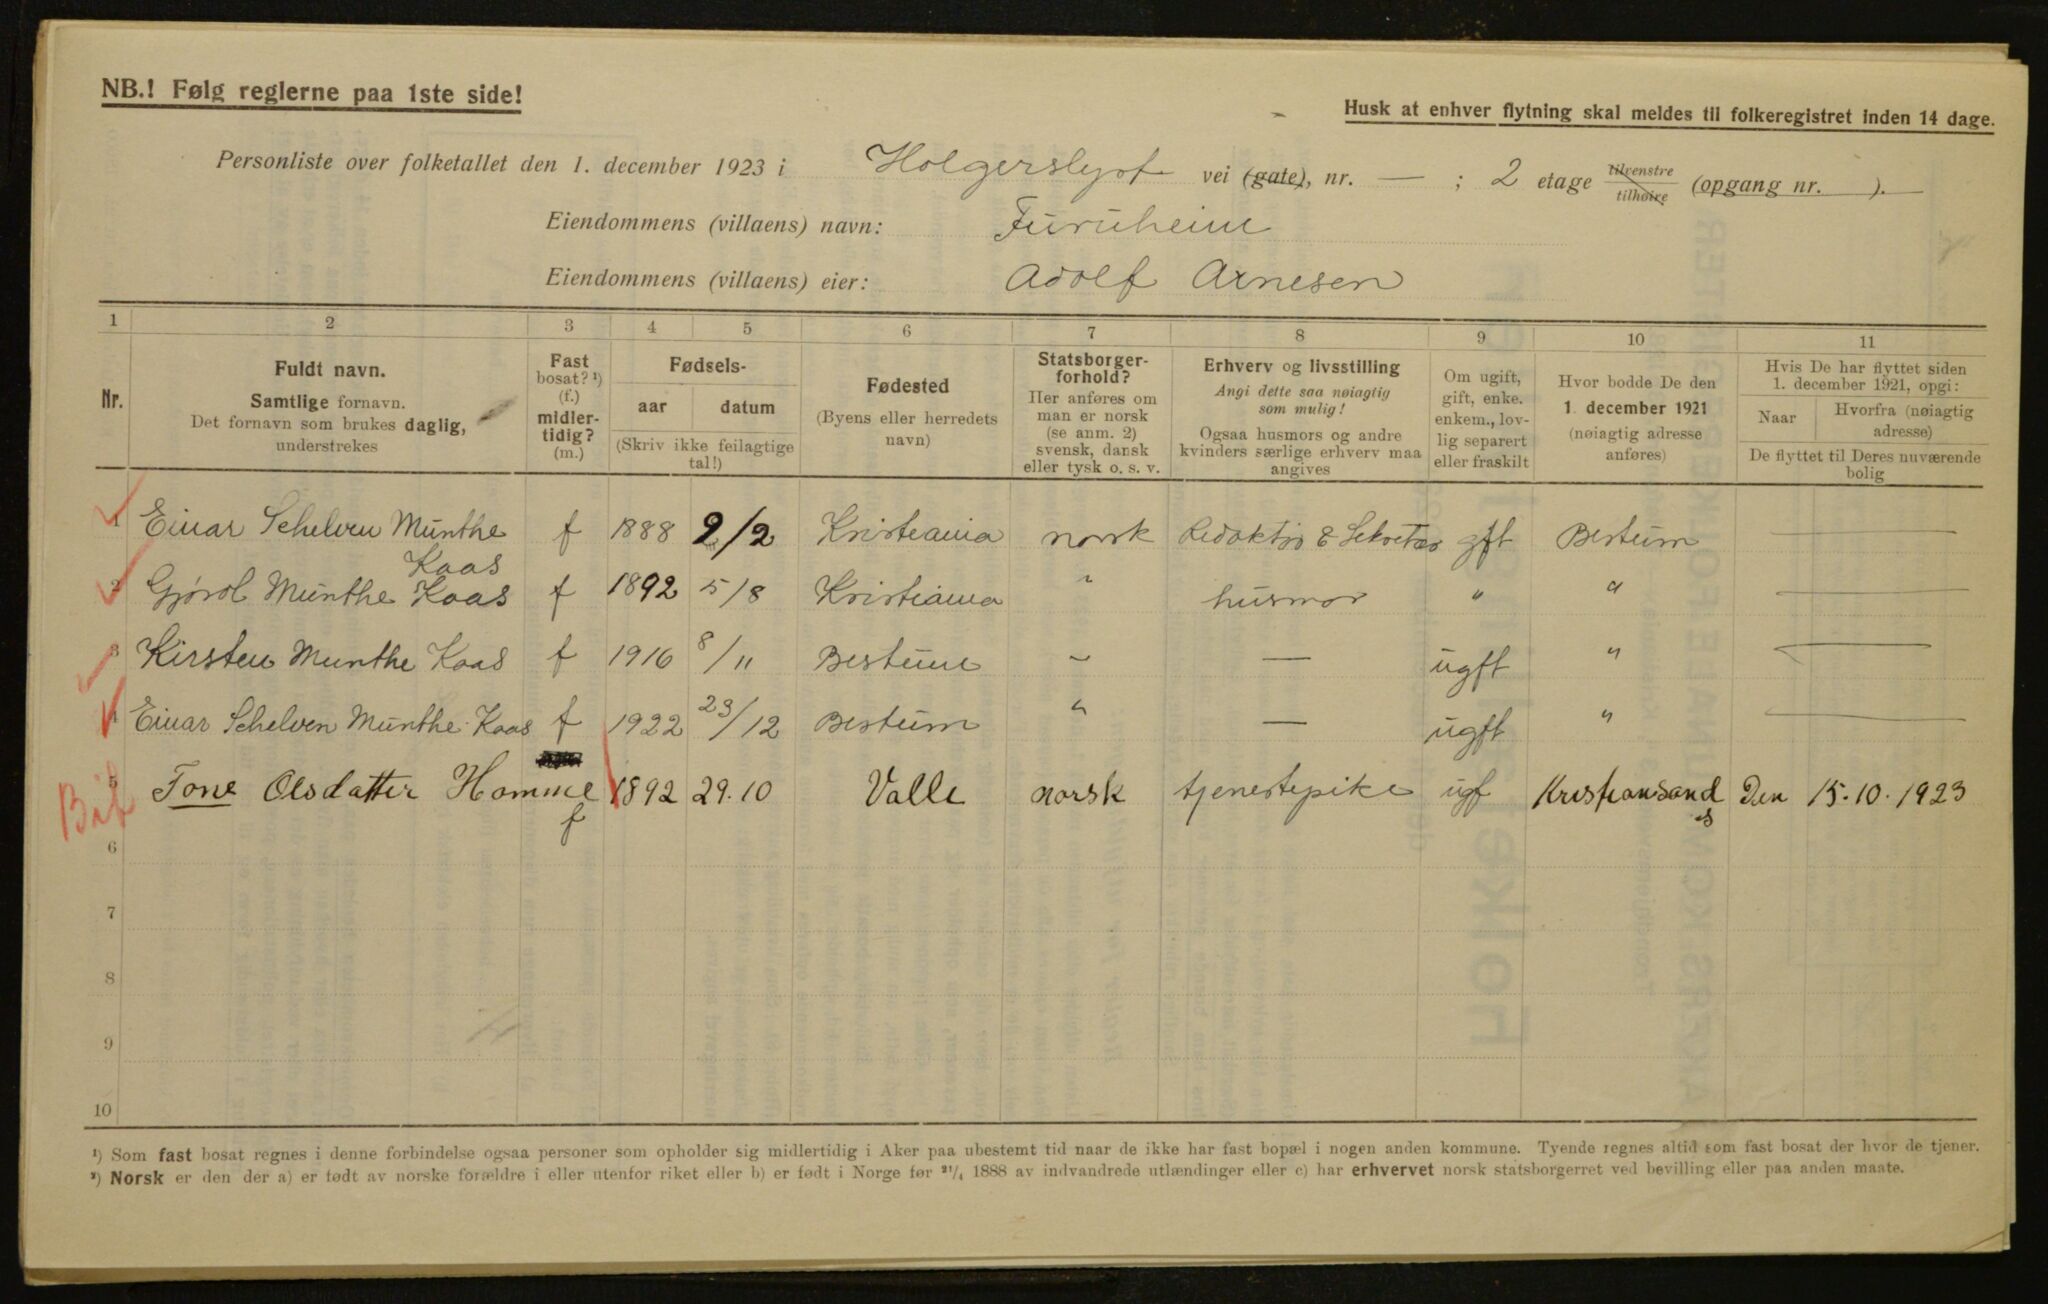 NB.! Følg reglerne paa 1ste side!
Husk at enhver flytning skal meldes til folkeregistret inden 14 dage.
Personliste over folketallet den 1. december 1923 i Holgerslyst vei (gate), nr. — ; 2 etage tilvenstre tilhøire (opgang nr. ).
Eiendommens (villaens) navn: Furuheim
Eiendommens (villaens) eier: Adolf Arnesen
1 2 3 4 5 6 7 8 9 10 11
Nr.
Fuldt navn.
Samtlige fornavn.
Det fornavn som brukes daglig,
understrekes
Fast
bosat? ¹)
(f.)
midler-
tidig?
(m.)
Fødsels-
aar datum
(Skriv ikke feilagtige
tal!)
Fødested
(Byens eller herredets
navn)
Statsborger-
forhold?
Her anføres om
man er norsk
(se anm. 2)
svensk, dansk
eller tysk o. s. v.
Erhverv og livsstilling
Angi dette saa nøiagtig
som mulig!
Ogsaa husmors og andre
kvinders særlige erhverv maa
angives
Om ugift,
gift, enke.
enkem., lov-
lig separert
eller fraskilt
Hvor bodde De den
1. december 1921
(nøiagtig adresse
anføres)
Hvis De har flyttet siden
1. december 1921, opgi:
Naar Hvorfra (nøiagtig
adresse)
De flyttet til Deres nuværende
bolig
1 Einar Schelven Munthe Kaas f 1888 9/2 Kristiania norsk Redaktør & Sekretær gft Bestum —
2 Gjørol Munthe Kaas f 1892 5/8 Kristiania " husmor " " —
3 Kirsten Munthe Kaas f 1916 8/11 Bestum " — ugft " —
4 Einar Schelven Munthe-Kaas f 1922 23/12 Bestum " — ugft " —
Bif 5 Tone Olsdatter Homme f 1892 29.10 Valle norsk tjenestepike ugf Kristiansand s Den 15.10.1923
6
7
8
9
10
¹) Som fast bosat regnes i denne forbindelse ogsaa personer som opholder sig midlertidig i Aker paa ubestemt tid naar de ikke har fast bopæl i nogen anden kommune. Tyende regnes altid som fast bosat der hvor de tjener.
²) Norsk er den der a) er født av norske forældre i eller utenfor riket eller b) er født i Norge før ²¹/₄ 1888 av indvandrede utlændinger eller c) har erhvervet norsk statsborgerret ved bevilling eller paa anden maate.